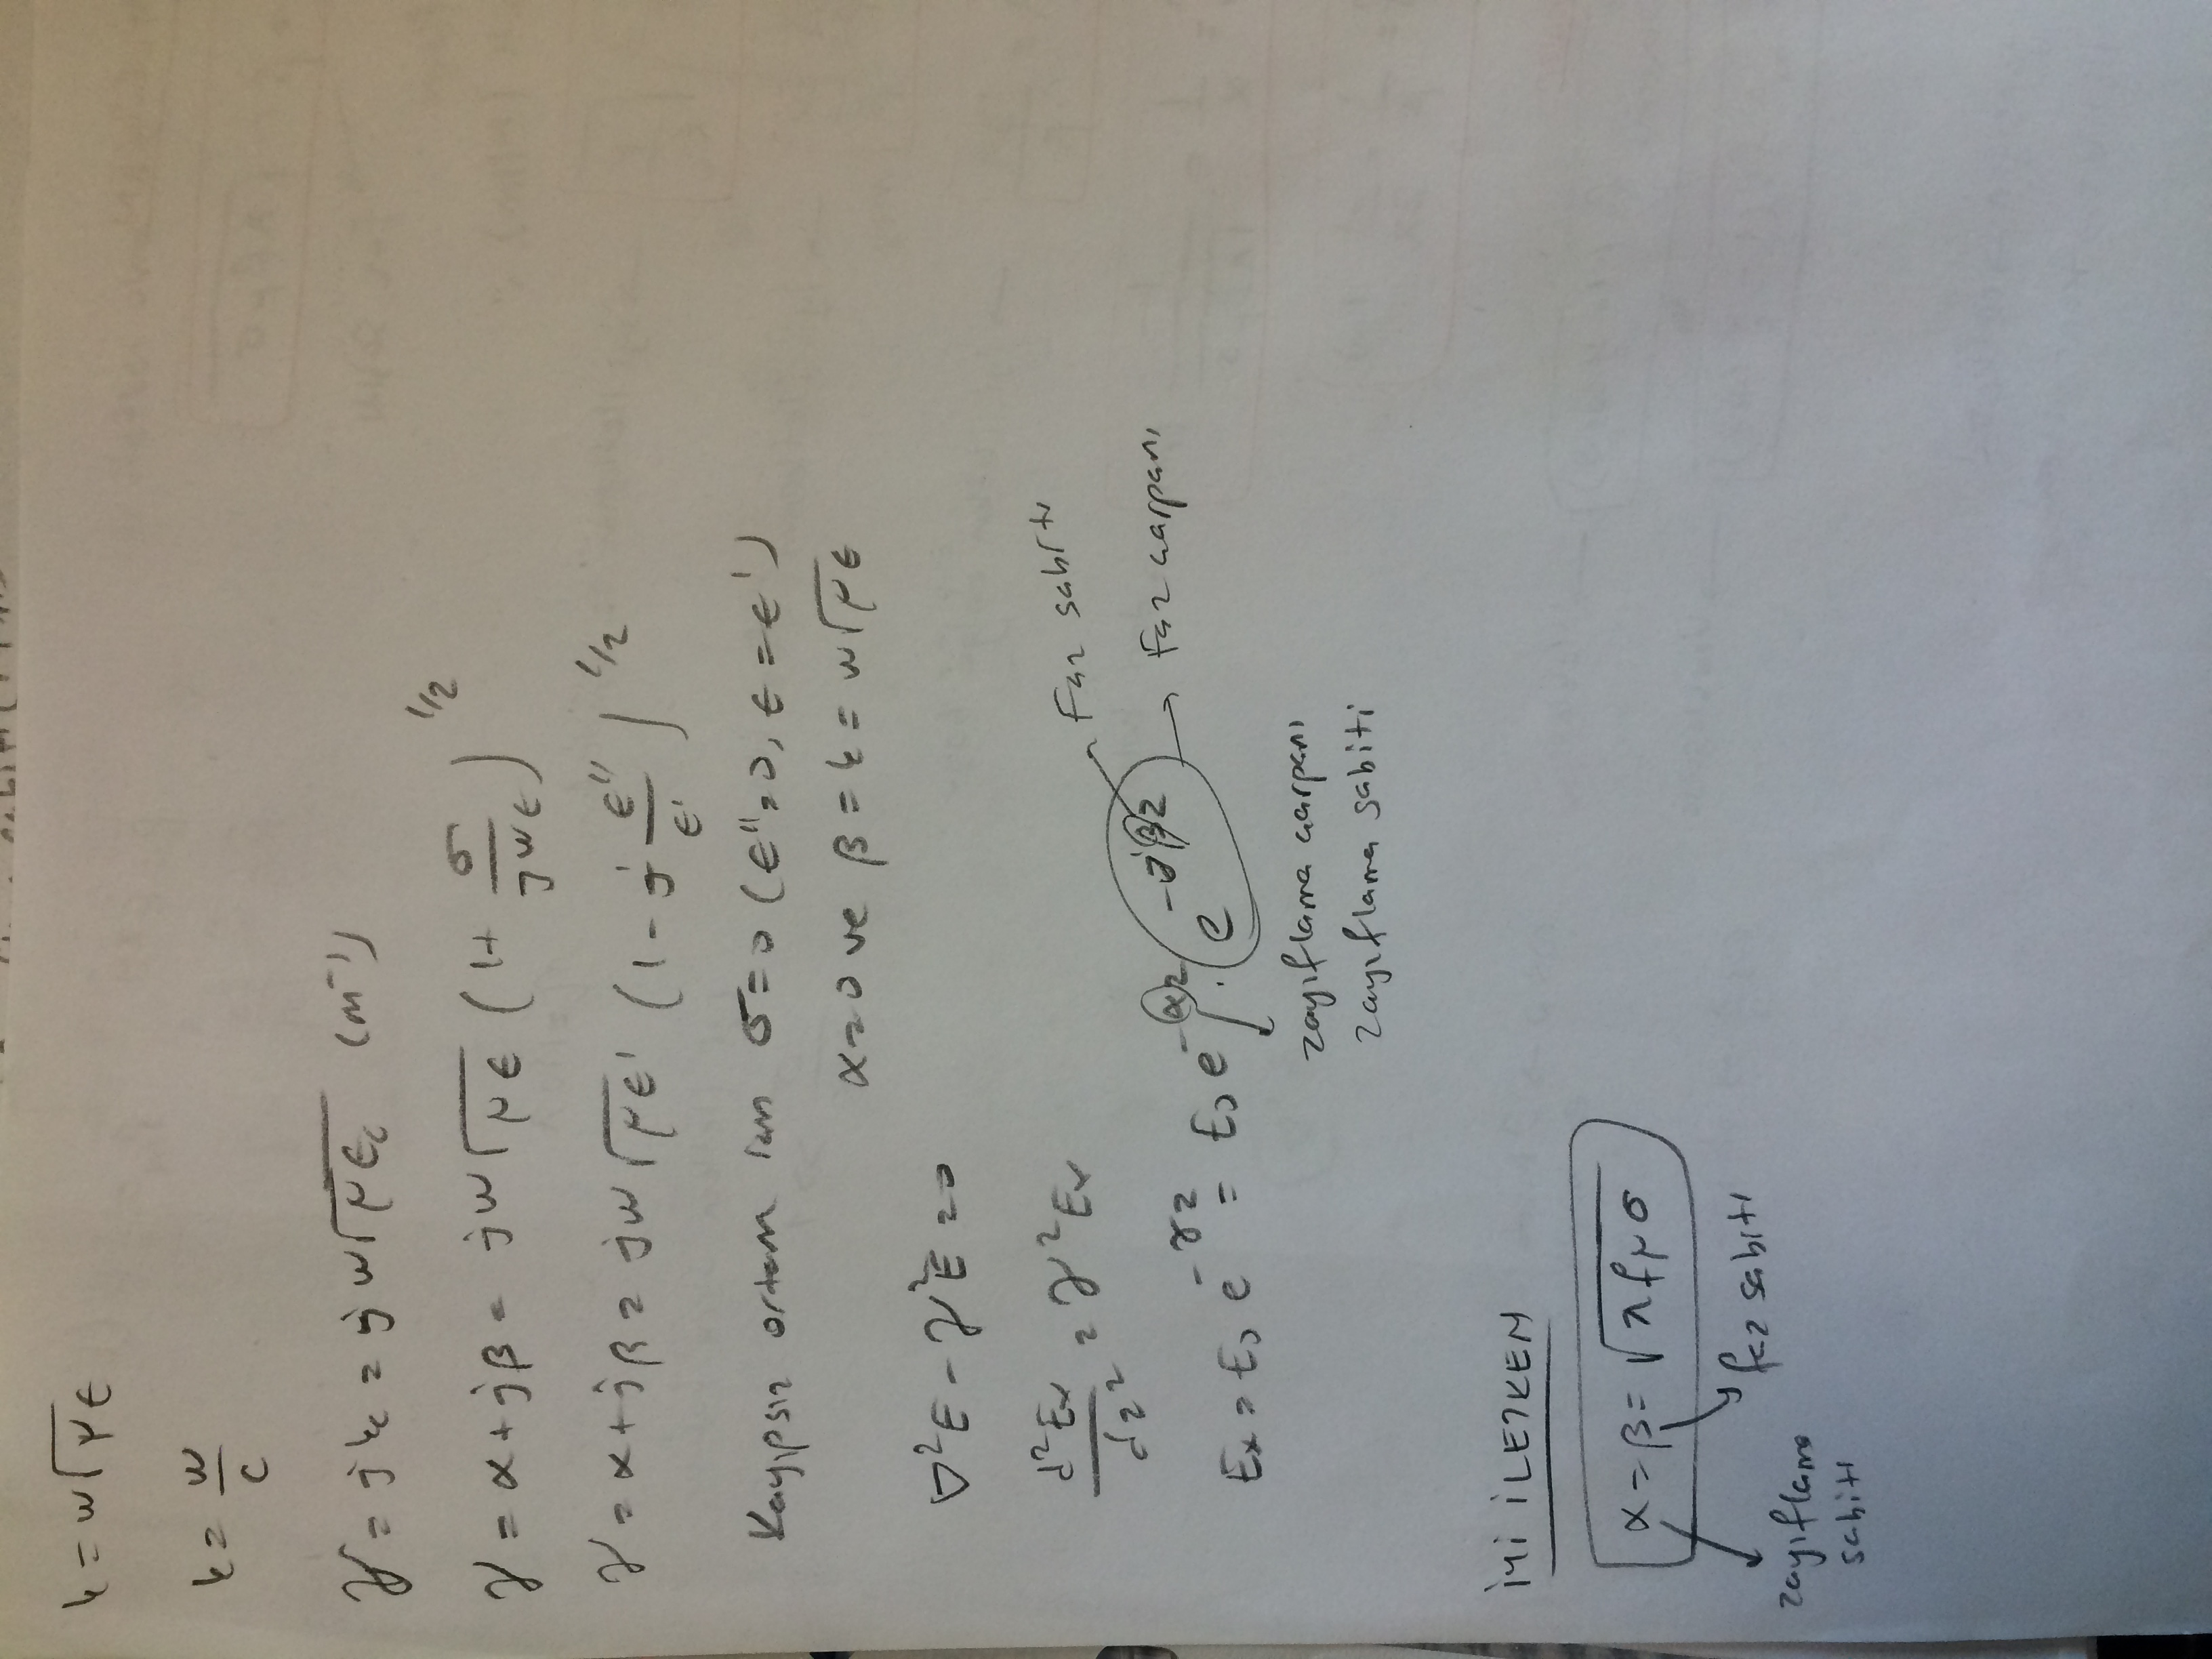 k = w√με
k = w/c
γ = jkc = jw√μεc (m⁻¹)
γ = α + jβ = jw√με (1 + σ/jwε)^1/2
γ = α + jβ = jw√με' (1 - j ε''/ε')^1/2
Kayıpsız ortam için σ = 0 (ε'' = 0, ε = ε')
α = 0 ve β = k = w√με
∇²E - γ²E = 0
d²Ex/dz² = γ²Ex
Faz sabiti
Ex = E₀ e^-γz = E₀ e^-αz . e^-jβz
Faz çarpanı
zayıflama çarpanı
zayıflama sabiti
İYİ İLETKEN
α = β = √πfμσ
faz sabiti
zayıflama
sabiti